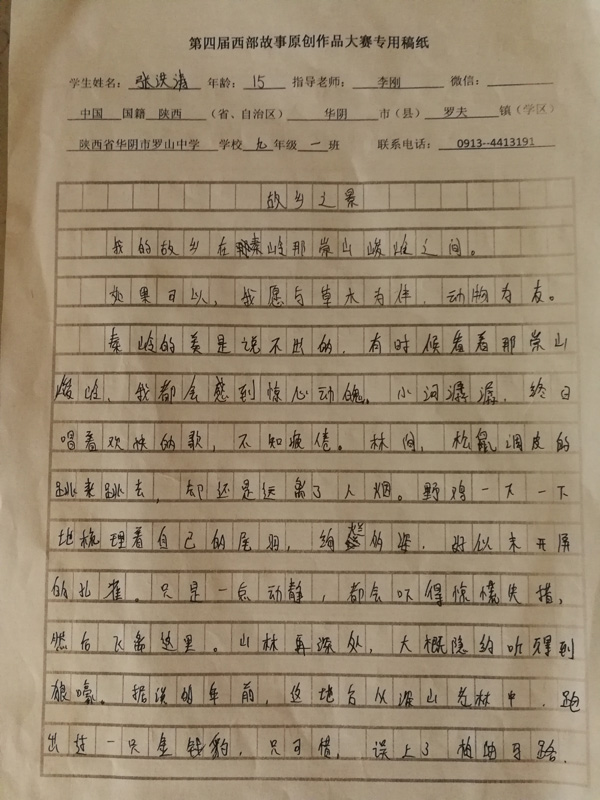 第四届西部故事原创作品大赛专用稿纸
学生姓名：张洪涛 年龄：15 指导老师：李刚 微信：
中国 国籍 陕西 （省、自治区） 华阴 市（县） 罗夫 镇（学区）
陕西省华阴市罗山中学 学校 九 年级 一 班 联系电话：0913--4413191
故乡之景
我的故乡在那秦岭那崇山峻岭之间。
如果可以，我愿与草木为伴，动物为友。
秦岭的美是说不出的，有时候看着那崇山
峻岭，我都会感到惊心动魄。小河潺潺，终日
唱着欢快的歌，不知疲倦。林间，松鼠调皮的
跳来跳去，却还是远离了人烟。野鸡一下一下
地梳理着自己的尾羽，绚丽的姿，好似未开屏
的孔雀。只是一点动静，都会吓得惊慌失措，
然后飞离这里。山林再深处，大概隐约听得到
狼嚎。据说的年前，这地台从深山老林中，跑
出过一只金钱豹，只可惜，误上了柏油马路.